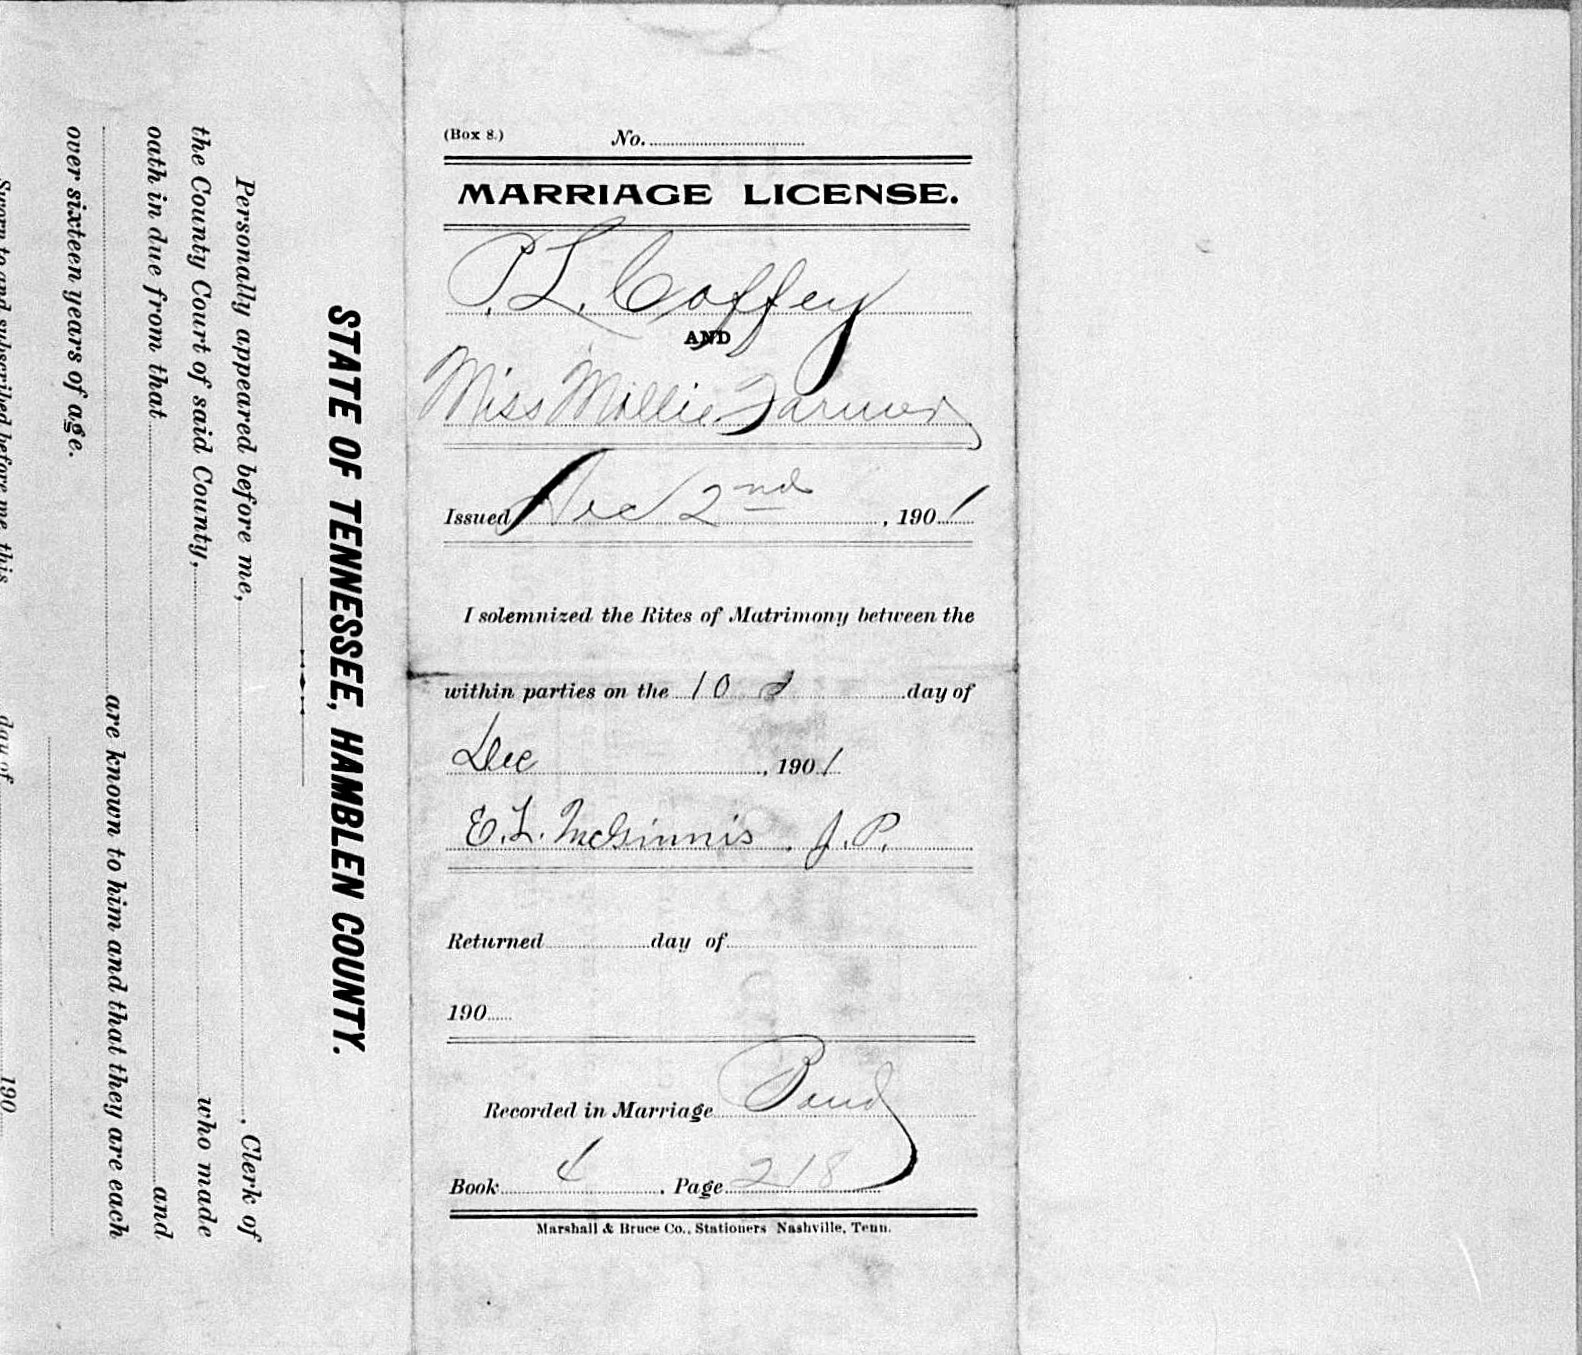 (Box 8.) No.
MARRIAGE LICENSE.
P. L. Coffey
AND
Miss Mollie Farmer
Issued Dec 2nd, 1901
I solemnized the Rites of Matrimony between the
within parties on the 10 day of
Dec, 1901
E. L. McGinnis. J. P.
Returned day of
190
Recorded in Marriage
Book 4. Page 218
Marshall & Bruce Co., Stationers Nashville, Tenn.
STATE OF TENNESSEE, HAMBLEN COUNTY.
Personally appeared before me, , Clerk of
the County Court of said County, who made
oath in due from that and
are known to him and that they are each
over sixteen years of age.
Sworn to and subscribed before me, this day of 190